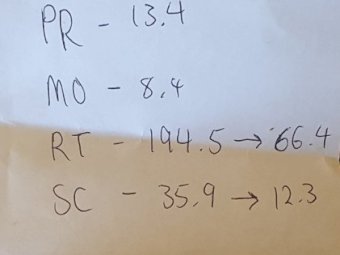 PR - 13.4
MO - 8.4
RT - 194.5 → 66.4
SC - 35.9 → 12.3